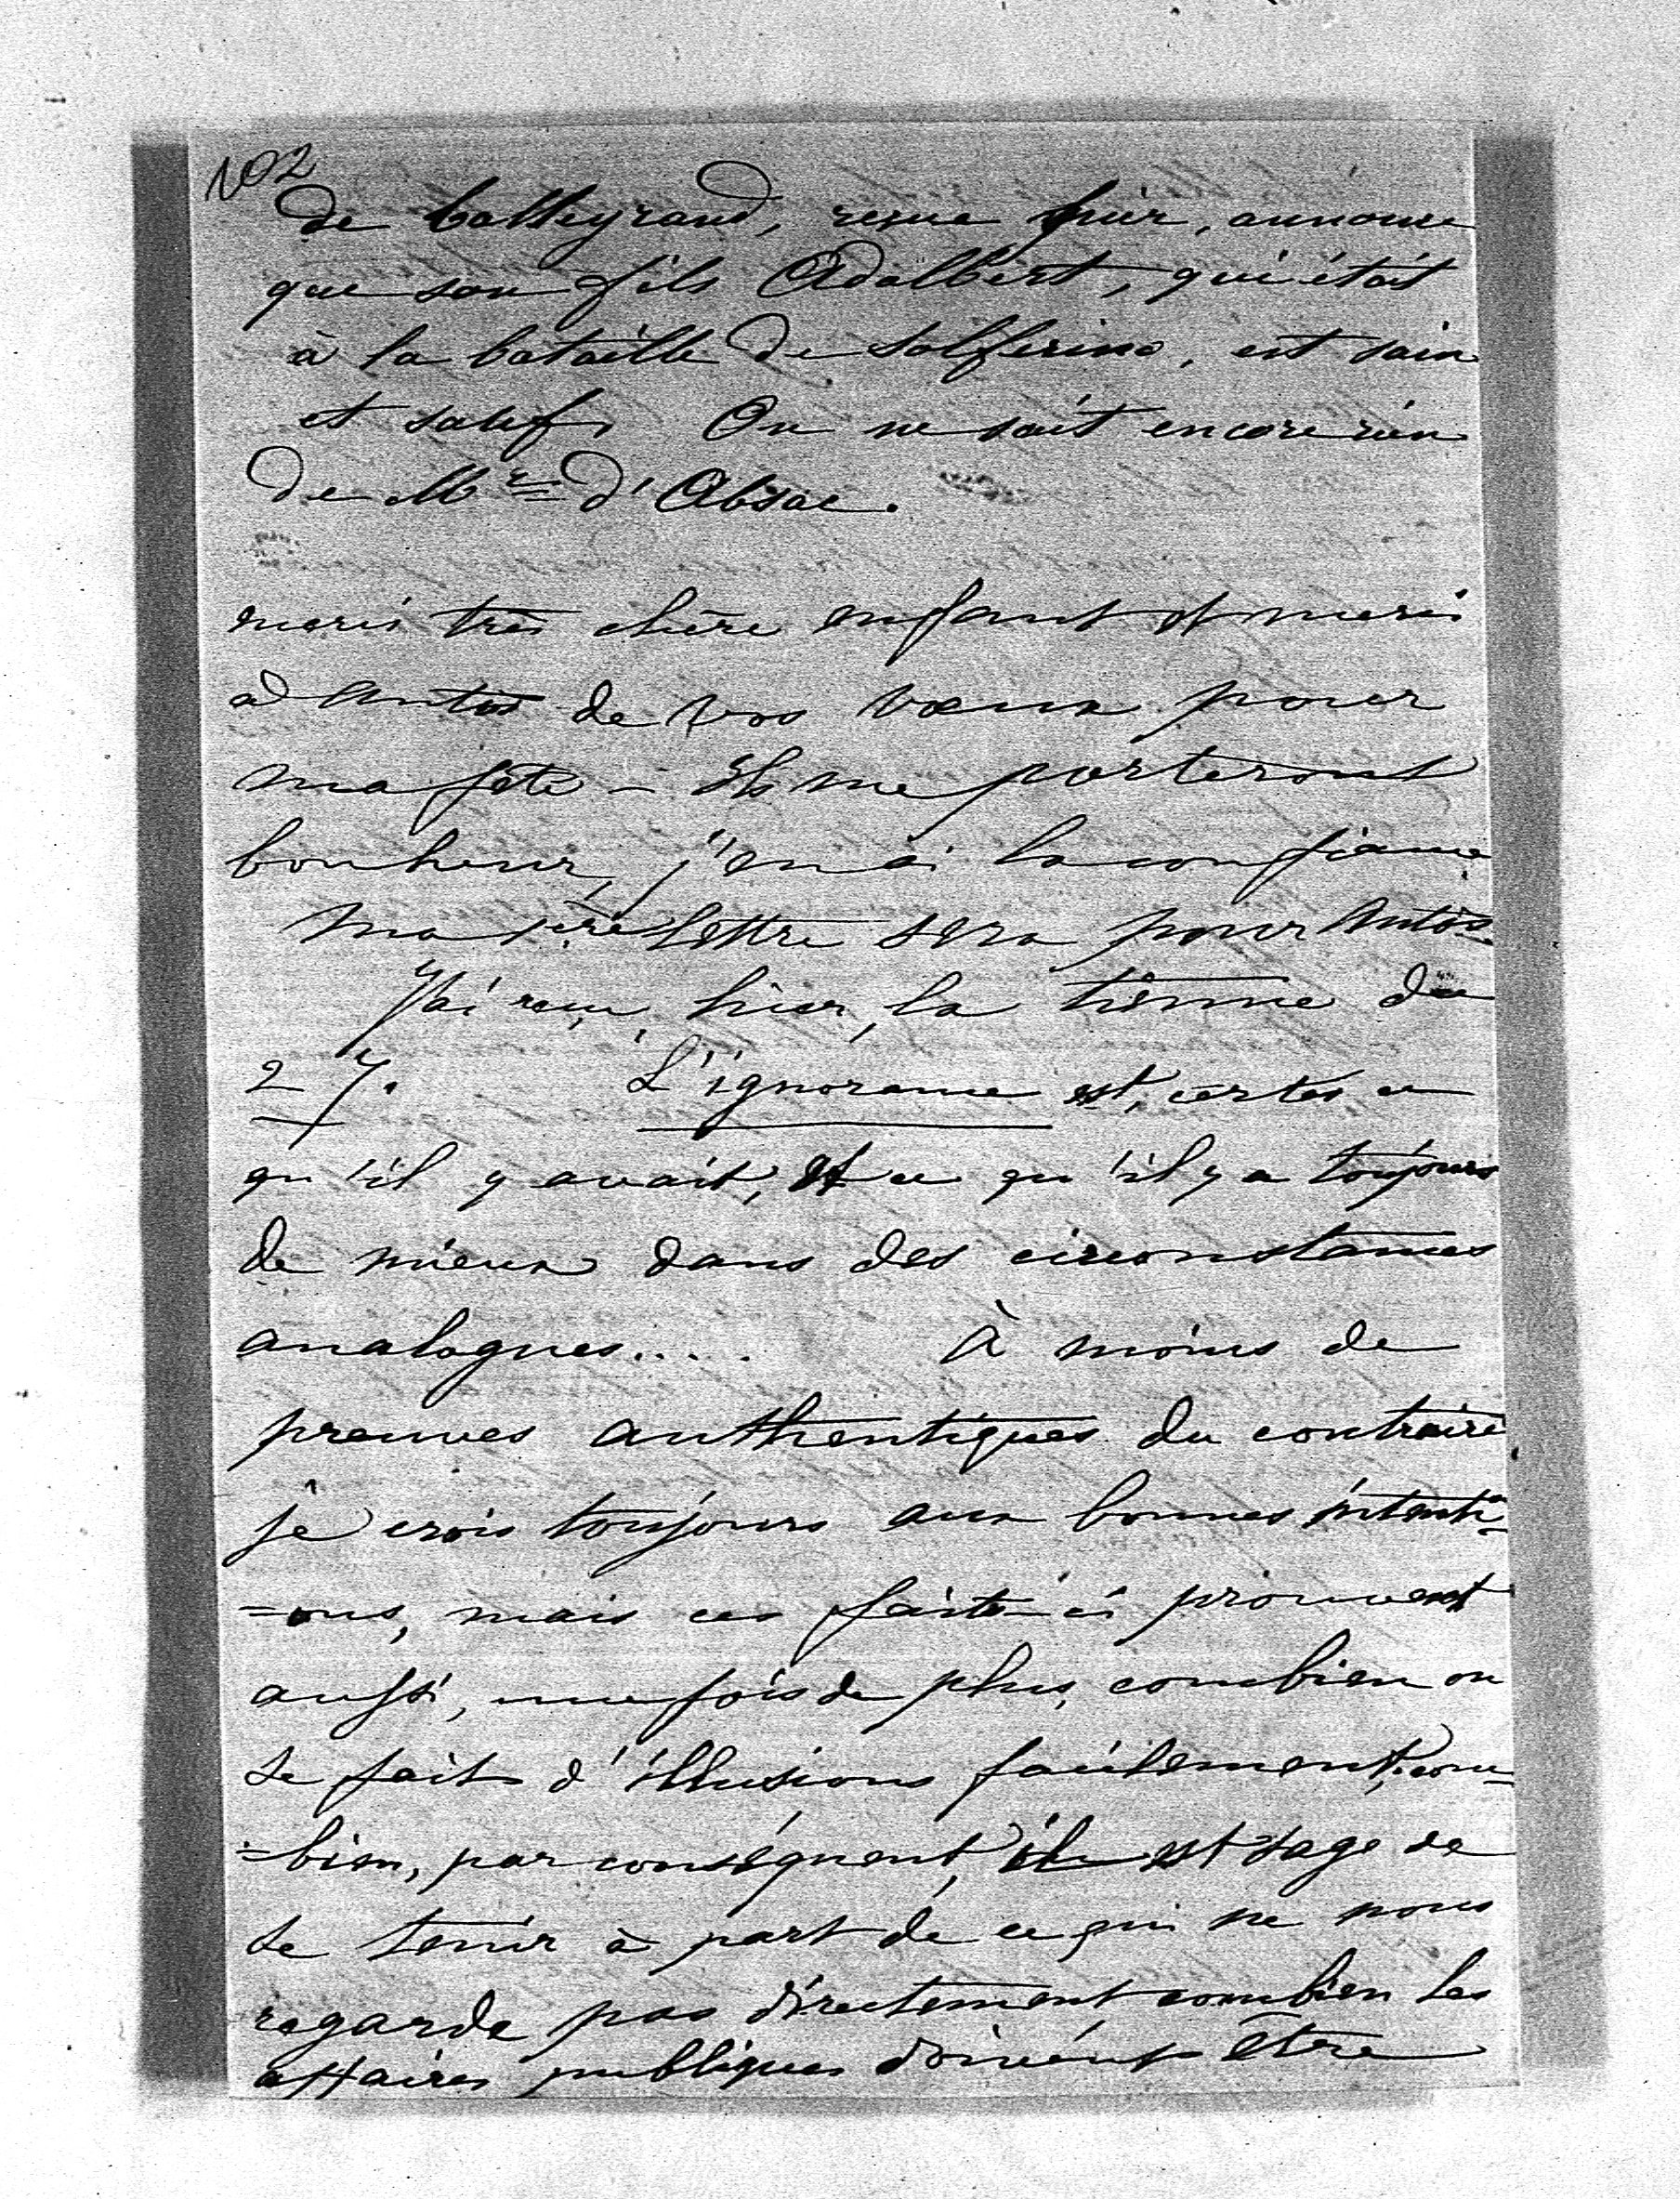 102
de Talleyrand, reçue hier, annonce
que son fils Adalbert, qui était
à la bataille de Solferino, est sain
et sauf. On ne sait encore rien
de Mr d'Abzac.
merci très chère enfant et merci
à Antos de vos vœux pour
ma fête – Ils me porteront
bonheur, j'en ai la confiance
Ma 1ère lettre sera pour Antos.
J'ai reçu, hier, la tienne du
27. L'ignorance est, certes ce
qu'il y avait, et ce qu'il y a toujours
de mieux dans des circonstances
analogues.... À moins de
preuves authentiques du contraire,
je crois toujours aux bonnes intenti-
=ons, mais ces faits-ci prouvent
aussi, une fois de plus, combien on
se fait d'illusions facilement, com-
=bien, par conséquent, il est sage de
se tenir à part de ce qui ne nous
regarde pas directement, combien les
affaires publiques doivent être